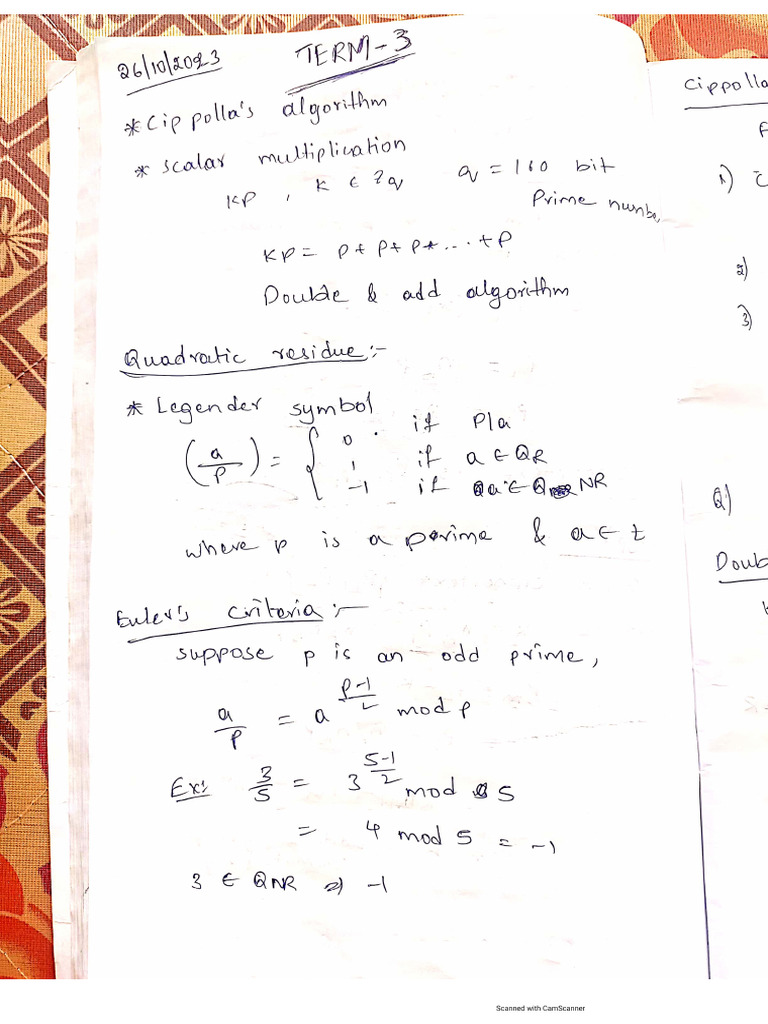 26/10/2023 TERM-3
* Cippolla's algorithm
* Scalar multiplication
KP , K ∈ Zq q = 160 bit
Prime numbe
KP = P + P + P + ... + P
Double & add algorithm
Quadratic residue :-
* Legender symbol
(a/P) = { 0 if P/a
1 if a ∈ QR
-1 if a ∈ QNR
where p is a perime & a ∈ z
Euler's criteria :-
suppose p is an odd prime,
a/p = a^(p-1)/2 mod p
Ex: 3/5 = 3^(5-1)/2 mod 5
= 4 mod 5 = -1
3 ∈ QNR => -1
Cippolla
1)
2)
3)
Q)
Doub
Scanned with CamScanner